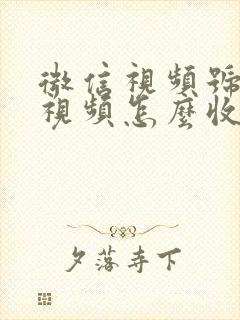 微信視頻號
視頻怎麼收
夕落寺下